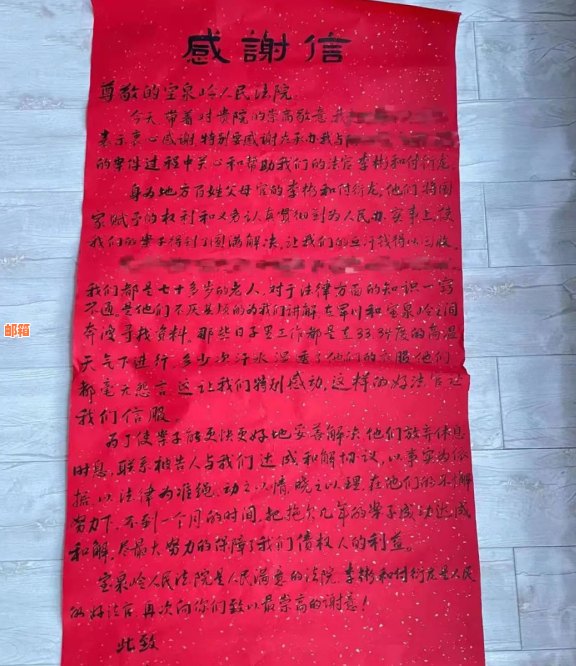 感謝信
尊敬的宝泉岭人民法院
今天带着对贵院的崇高敬意我
表示衷心感谢特别要感谢在承办我与
的案件过程中关心和帮助我们的法官李彬和付衍龙
身为地方百姓父母官的李彬和付衍龙,他们将国
家赋予的权利和义务认真贯彻到为人民办实事上,使
我们的案子得到了圆满解决,让我们的血汗钱得以回收
我们都是七十多岁的老人,对于法律方面的知识一窍
不通,是他们不厌其烦的为我们讲解,在军川和宝泉岭之间
奔波寻找资料。那些日子里工作都是在33.34度的高温
天气下进行,多少次汗水湿透了他们的衣服他们
都毫无怨言,这让我们特别感动,这样的好法官让
我们信服
为了使案子能更快更好地妥善解决,他们放弃休息
时息,联系被告人与我们达成和解协议,以事实为依
据,以法律为准绳,动之以情,晓之以理,在他们的不懈
努力下,不到一个月的时间,把拖欠几年的案子成功达成
和解,尽最大努力的保障了我们债权人的利益。
宝泉岭人民法院是人民满意的法院,李彬和付衍龙是人民
的好法官,再次向你们致以最崇高的谢意!
此致
邮箱